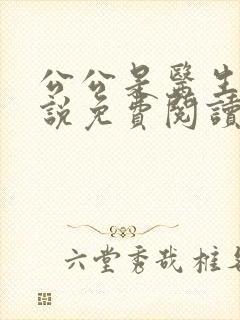 公公是醫生
說免費閱讀
六堂秀哉 桩